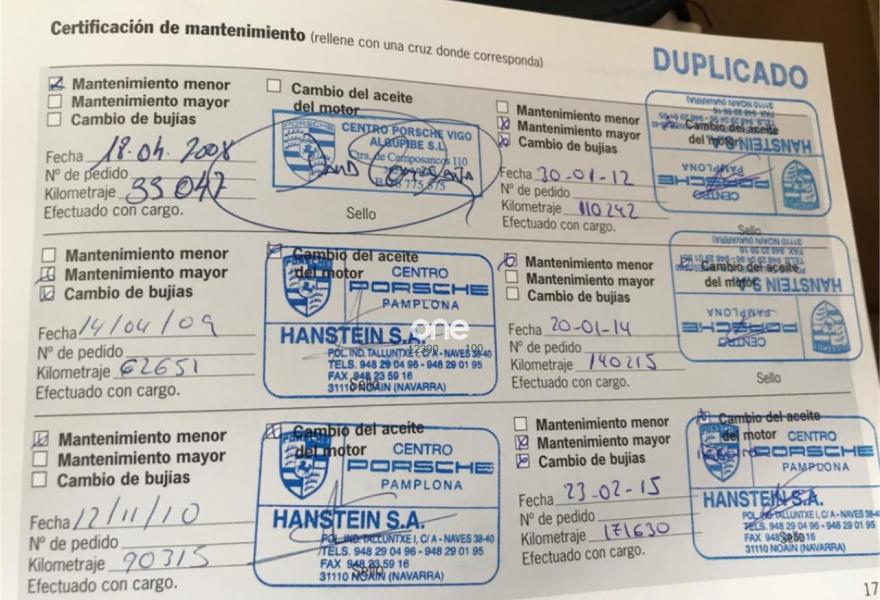 Certificación de mantenimiento (rellene con una cruz donde corresponda)
DUPLICADO
Mantenimiento menor
Mantenimiento mayor
Cambio de bujías
Cambio del aceite
del motor
Fecha 18.04.2008
Nº de pedido
Kilometraje 33 047
Efectuado con cargo.
PORSCHE
CENTRO PORSCHE VIGO
ALGUPIBE S.L.
Ctra. de Camposancos 110
Sello
Mantenimiento menor
Mantenimiento mayor
Cambio de bujías
Cambio del aceite
del motor
Fecha 30-01-12
Nº de pedido
Kilometraje 110242
Efectuado con cargo.
CENTRO
PORSCHE
PAMPLONA
HANSTEIN S.A.
31110 NOAIN (NAVARRA)
Sello
Mantenimiento menor
Mantenimiento mayor
Cambio de bujías
Cambio del aceite
del motor
Fecha 14/04/09
Nº de pedido
Kilometraje 62651
Efectuado con cargo.
CENTRO
PORSCHE
PAMPLONA
HANSTEIN S.A.
POL. IND. TALLUNTXE I, C/ A - NAVES 38-40
TELS. 948 29 04 96 - 948 29 01 95
FAX 948 23 59 16
31110 NOAIN (NAVARRA)
Sello
one
12390 100
Mantenimiento menor
Mantenimiento mayor
Cambio de bujías
Cambio del aceite
del motor
Fecha 20-01-14
Nº de pedido
Kilometraje 140215
Efectuado con cargo.
CENTRO
PORSCHE
PAMPLONA
HANSTEIN S.A.
31110 NOAIN (NAVARRA)
Sello
Mantenimiento menor
Mantenimiento mayor
Cambio de bujías
Cambio del aceite
del motor
Fecha 12/11/10
Nº de pedido
Kilometraje 90315
Efectuado con cargo.
CENTRO
PORSCHE
PAMPLONA
HANSTEIN S.A.
POL. IND. TALLUNTXE I, C/ A - NAVES 38-40
TELS. 948 29 04 96 - 948 29 01 95
FAX 948 23 59 16
31110 NOAIN (NAVARRA)
Sello
Mantenimiento menor
Mantenimiento mayor
Cambio de bujías
Cambio del aceite
del motor
Fecha 23-02-15
Nº de pedido
Kilometraje 171630
Efectuado con cargo.
CENTRO
PORSCHE
PAMPLONA
HANSTEIN S.A.
POL. IND. TALLUNTXE I, C/ A - NAVES 38-40
TELS. 948 29 04 96 - 948 29 01 95
31110 NOAIN (NAVARRA)
Sello
17